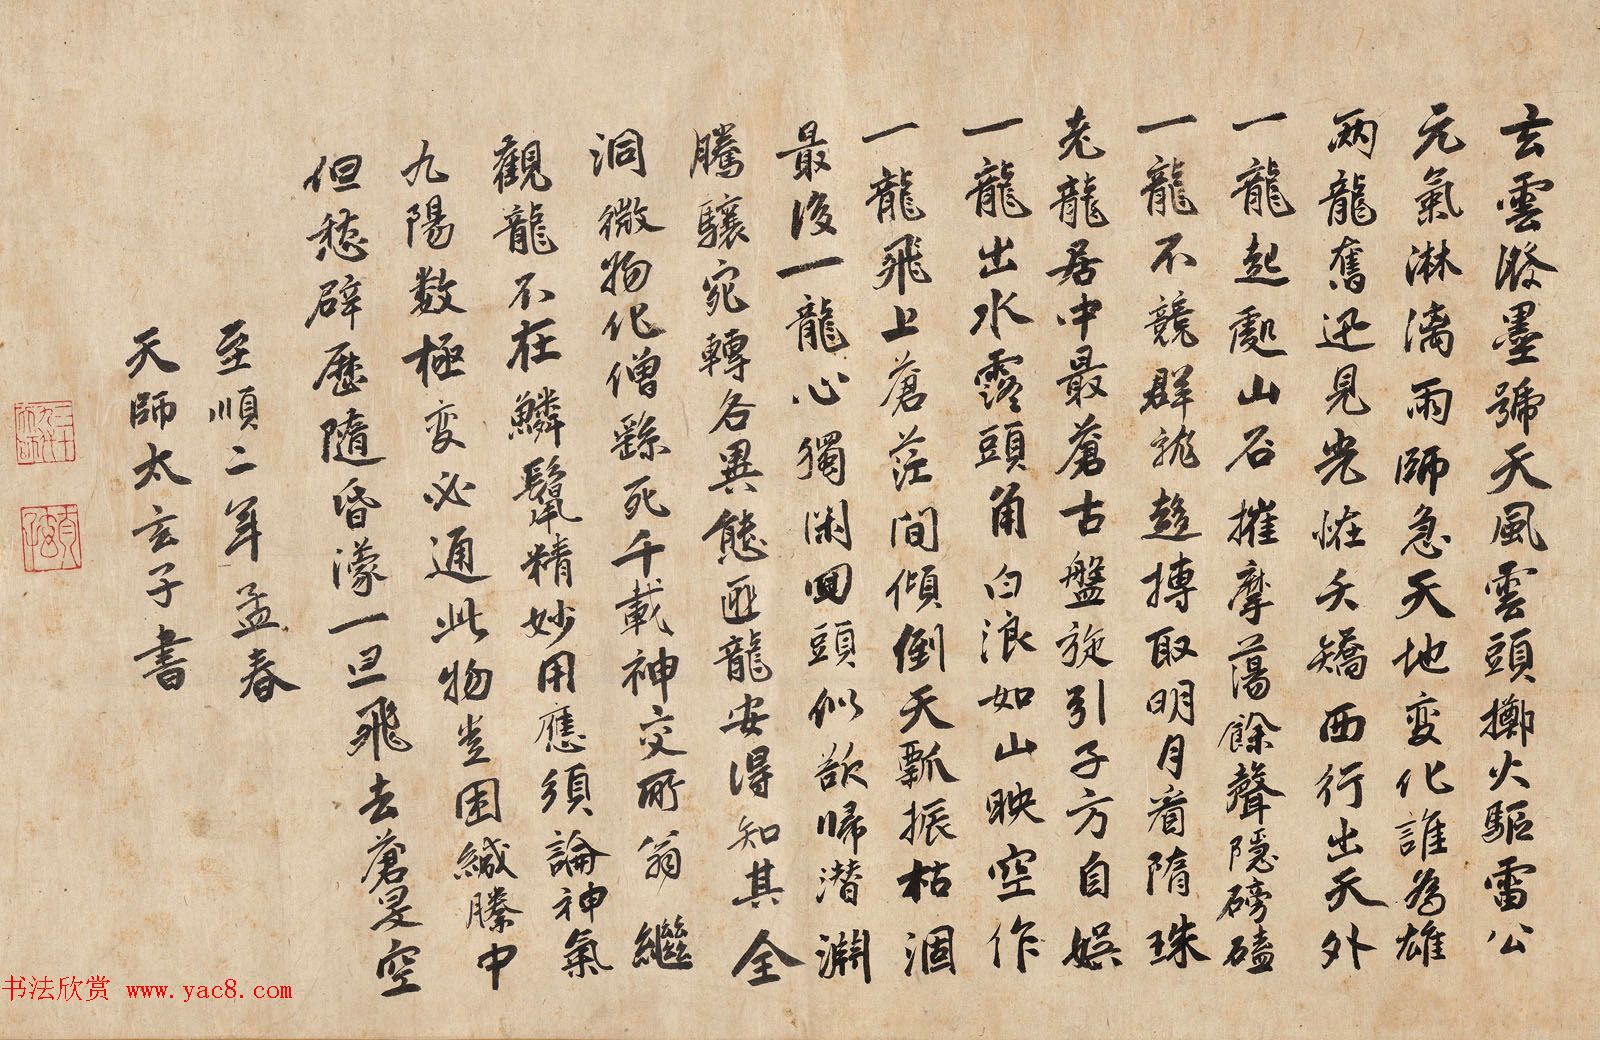 玄雲潑墨號天風雲頭擲火驅雷公
元氣淋漓雨師急天地变化誰為雄
兩龍奮迅見光恠夭矯西行出天外
一龍起處山石摧摩蕩餘聲隱磅礚
一龍不競群龍趍搏取明月看隋珠
老龍居中最蒼古盤旋引子方自娛
一龍出水露頭角白浪如山映空作
一龍飛上蒼茫間傾倒天瓢振枯涸
最後一龍心獨閑回頭似欲歸潜淵
騰驤宛轉各異態匪龍安得知其全
洞微物化僧繇死千載神交所翁繼
觀龍不在鱗鬣精妙用應須論神氣
九陽数極变必通此物豈困緘縢中
但愁霹歷隨昏濛一旦飛去蒼旻空
至順二年孟春
天師太玄子書
书法欣赏 www.yac8.com